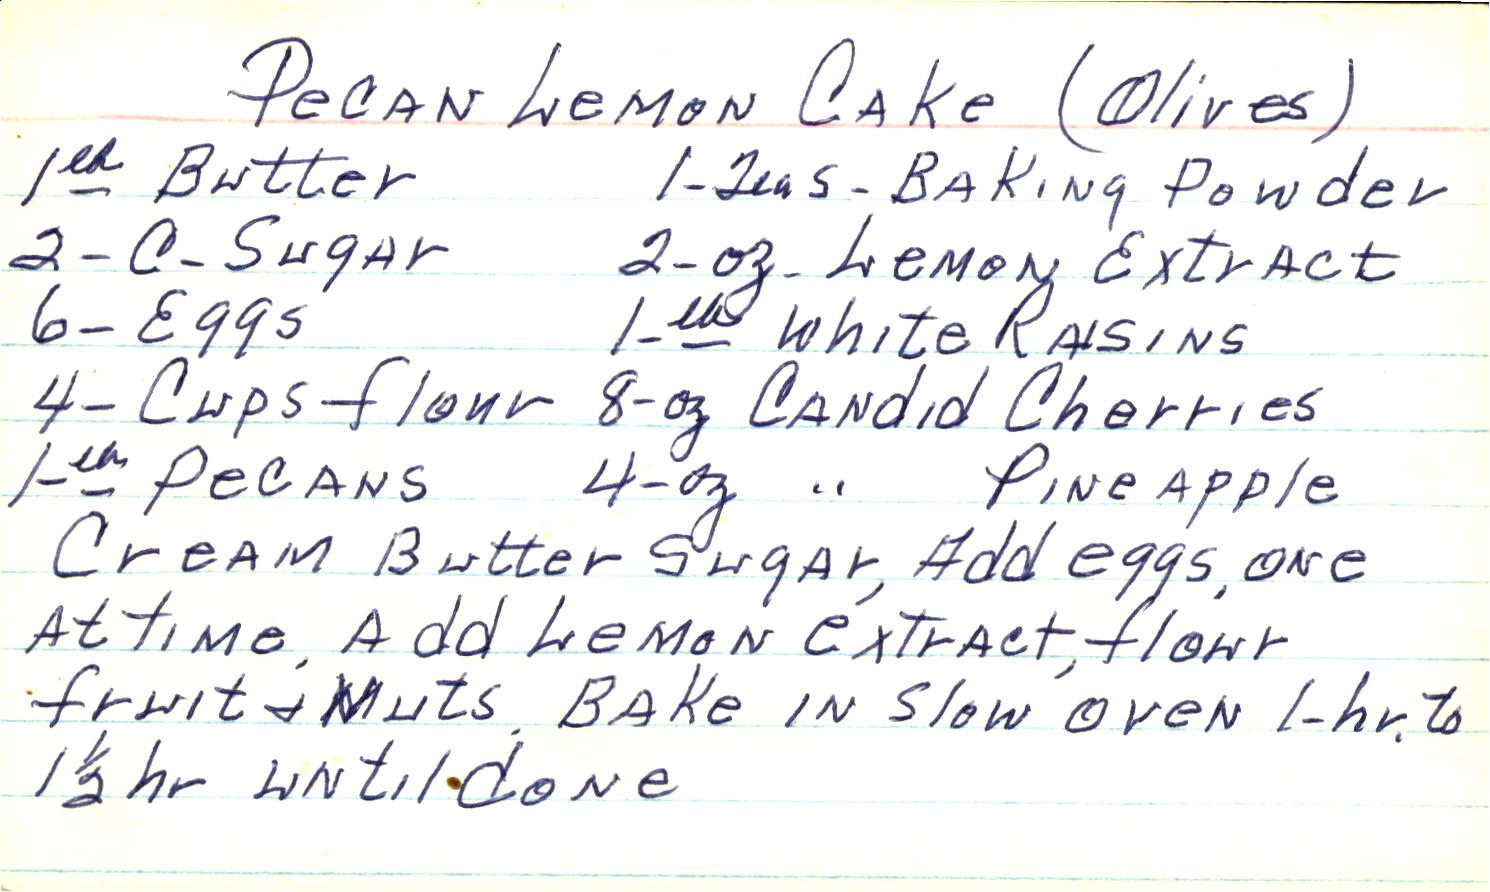 Pecan Lemon Cake (Olives)
1 lb Butter 1-Teas-Baking Powder
2-C-Sugar 2-oz-Lemon Extract
6-Eggs 1-lb White Raisins
4-Cups-flour 8-oz Candid Cherries
1-lb Pecans 4-oz " Pineapple
Cream Butter Sugar, Add eggs, one
At time, Add Lemon extract, flour
fruit & Nuts. Bake in slow oven 1-hr. to
1½ hr until done